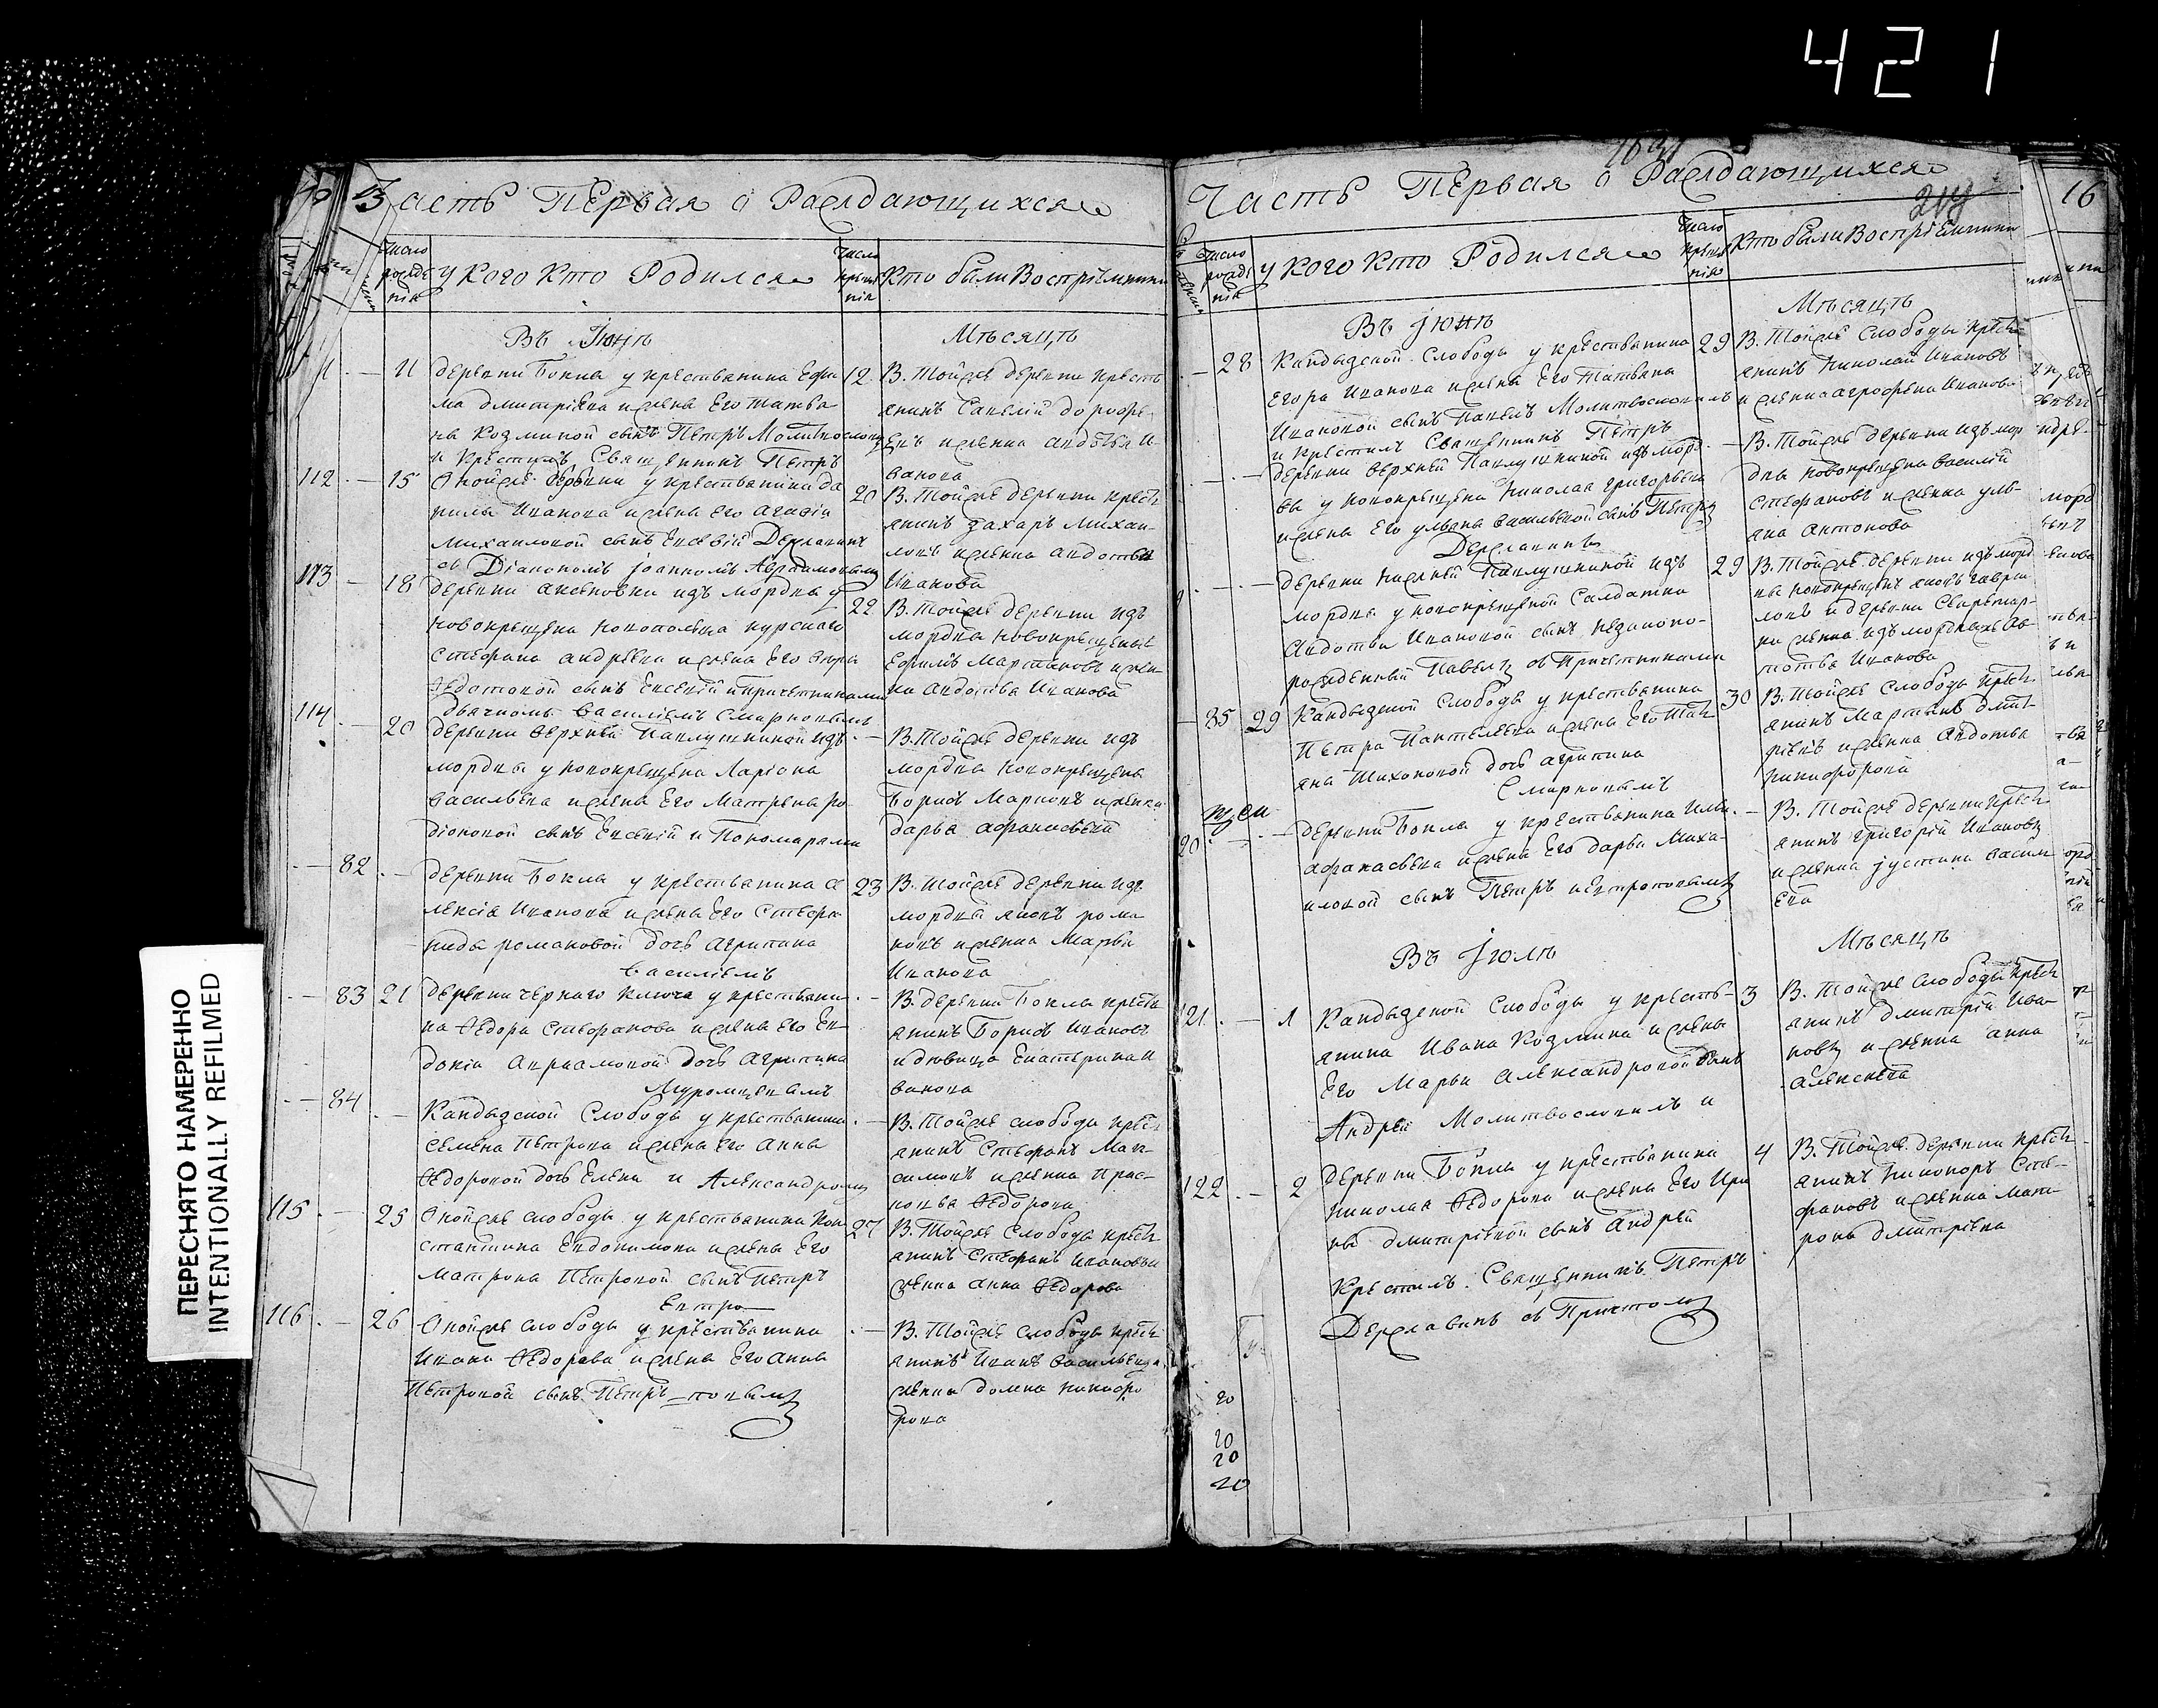 421
Часть Первая о Раждающихся
число рожде нія
У кого кто Родился
число креще нія
Кто были Воспріемники
Въ Іюнѣ
Мѣсяцѣ
11 деревни Бокла у крестьянина Ефи
ма Дмитріева и жены Его татья
ны Козминой сынъ Петръ Молитвословилъ
и Крестилъ Священникъ Петръ
12 В. Тойже деревни кресть
янинъ Савелій дорофе
евъ и женка авдотья И
ванова
112 15 Оной же деревни у крестьянина да
нилы Иванова и жены Его агафіи
Михайловой сынъ Евсевій Державинъ
съ Діакономъ Іоанномъ Авраамовымъ
20 В. Тойже деревни кресть
янинъ захаръ Михаи
ловъ и женка авдотья
Иванова
113 18 деревни аксеновки изъ мордвы у
новокрещена
Стефана андреева и жены Его
Федотовой сынъ Евсевій и причетниками
дьячкомъ Василіемъ Смирновымъ
22 В. Тойже деревни изъ
мордвы новокрещеныя
Ефимъ Мартыновъ и жен
ка авдотья Иванова
114 20 деревни верхней Павлушкиной изъ
мордвы у новокрещена Ларіона
Васильева и жены Его Матрены ро
діоновой сынъ Евсевій и Пономарями
В. Тойже деревни изъ
мордвы новокрещены
Борисъ Марковъ и женка
дарья афанасьева
82 деревни Бокла у крестьянина а
лексія Иванова и жены Его Стефа
ниды романовой дочь агрипина
Василіемъ
23 В. Тойже деревни изъ
мордвы яковъ рома
новъ и женка Марья
Иванова
83 21 деревни чернаго ключа у крестьяни
на Федора Стефанова и жены Его Ев
докіи авраамовой дочь агрипина
Муромцевымъ
В. деревни Боклы кресть
янинъ Борисъ Ивановъ
и дювица Екатерина И
ванова
84 Кандызской Слободы у крестьянина
Семена Петрова и жены Его анны
Федоровой дочь Елена и Александромъ
В. Тойже слободы кресть
янинъ Стефанъ Мак
симовъ и женка Прас
ковья Федорова
115 25 Оной же слободы у крестьянина Кон
стантина Евдокимова и жены Его
матрона Петровой сынъ Петръ
27 В. Тойже Слободы кресть
янинъ Стефанъ Ивановъ и
женка анна Федорова
116 26 Оной же слободы у крестьянина
Ивана Федорова и жены Его анны
Петровой сынъ Петръ
В. Тойже слободы кресть
янинъ Иванъ Васильевъ и
женка домна никифо
рова
Часть Первая о Раждающихся
214
16
У кого кто Родился
Кто были Воспріемники
Въ Іюнѣ
Мѣсяцѣ
28 Кандызской Слободы у крестьянина
Егора Иванова и жены Его татьяна
Ивановой сынъ Павелъ Молитвословилъ
и крестилъ Священникъ Петръ
29 В. Тойже Слободы кресть
янинъ Николай Ивановъ
и женка агрофена Иванова
деревни верхней Павлушкиной изъ морд
вы у новокрещена Николая григорьева
и жены Его ульяны васильевой сынъ Петръ
Державинъ
В. Тойже деревни изъ мор
двы новокрещены Василій
Стефановъ и женка уль
яна антонова
деревни нижней Павлушкиной изъ
мордвы у новокрещеной Салдатки
авдотьи Ивановой сынъ незаконо
рожденный Павелъ съ Причетниками
29 В. Тойже деревни изъ морд
вы новокрещенъ яковъ гаври
ловъ и деревни
ки женка изъ мордвы же ав
тотья Иванова
85 29 Кандызской Слободы у крестьянина
Петра Пантелеева и жены Его Тать
яны Тихоновой дочь агрипина
Смирновымъ
30 В. Тойже Слободы кресть
янинъ Мартынъ дмит
ріевъ и женка авдотья
никифорова
20 деревни Бокла у крестьянина Ильи
афанасьева и жены Его дарьи Миха
иловой сынъ Петръ
В. Тойже деревни кресть
янинъ григорій Ивановъ
и женка Іустина васил
Ева
Въ Іюлѣ
Мѣсяцѣ
121 1 Кандызской Слободы у кресть
янина Ивана Козмина и жены
Его Марьи александровой сынъ
Андрей Молитвословилъ и
3 В. Тойже слободы кресть
янинъ дмитрій Ива
новъ и женка анна
алексеева
122 2 деревни Боклы у крестьянина
николая Федорова и жены Его Ири
ны дмитріевой сынъ андрей
Крестилъ Священникъ Петръ
Державинъ съ Причтомъ
4 В. Тойже деревни кресть
янинъ никифоръ Сте
фановъ и женка мат
рона дмитріева
20
20
20
20
ПЕРЕСНЯТО НАМЕРЕННО
INTENTIONALLY REFILMED